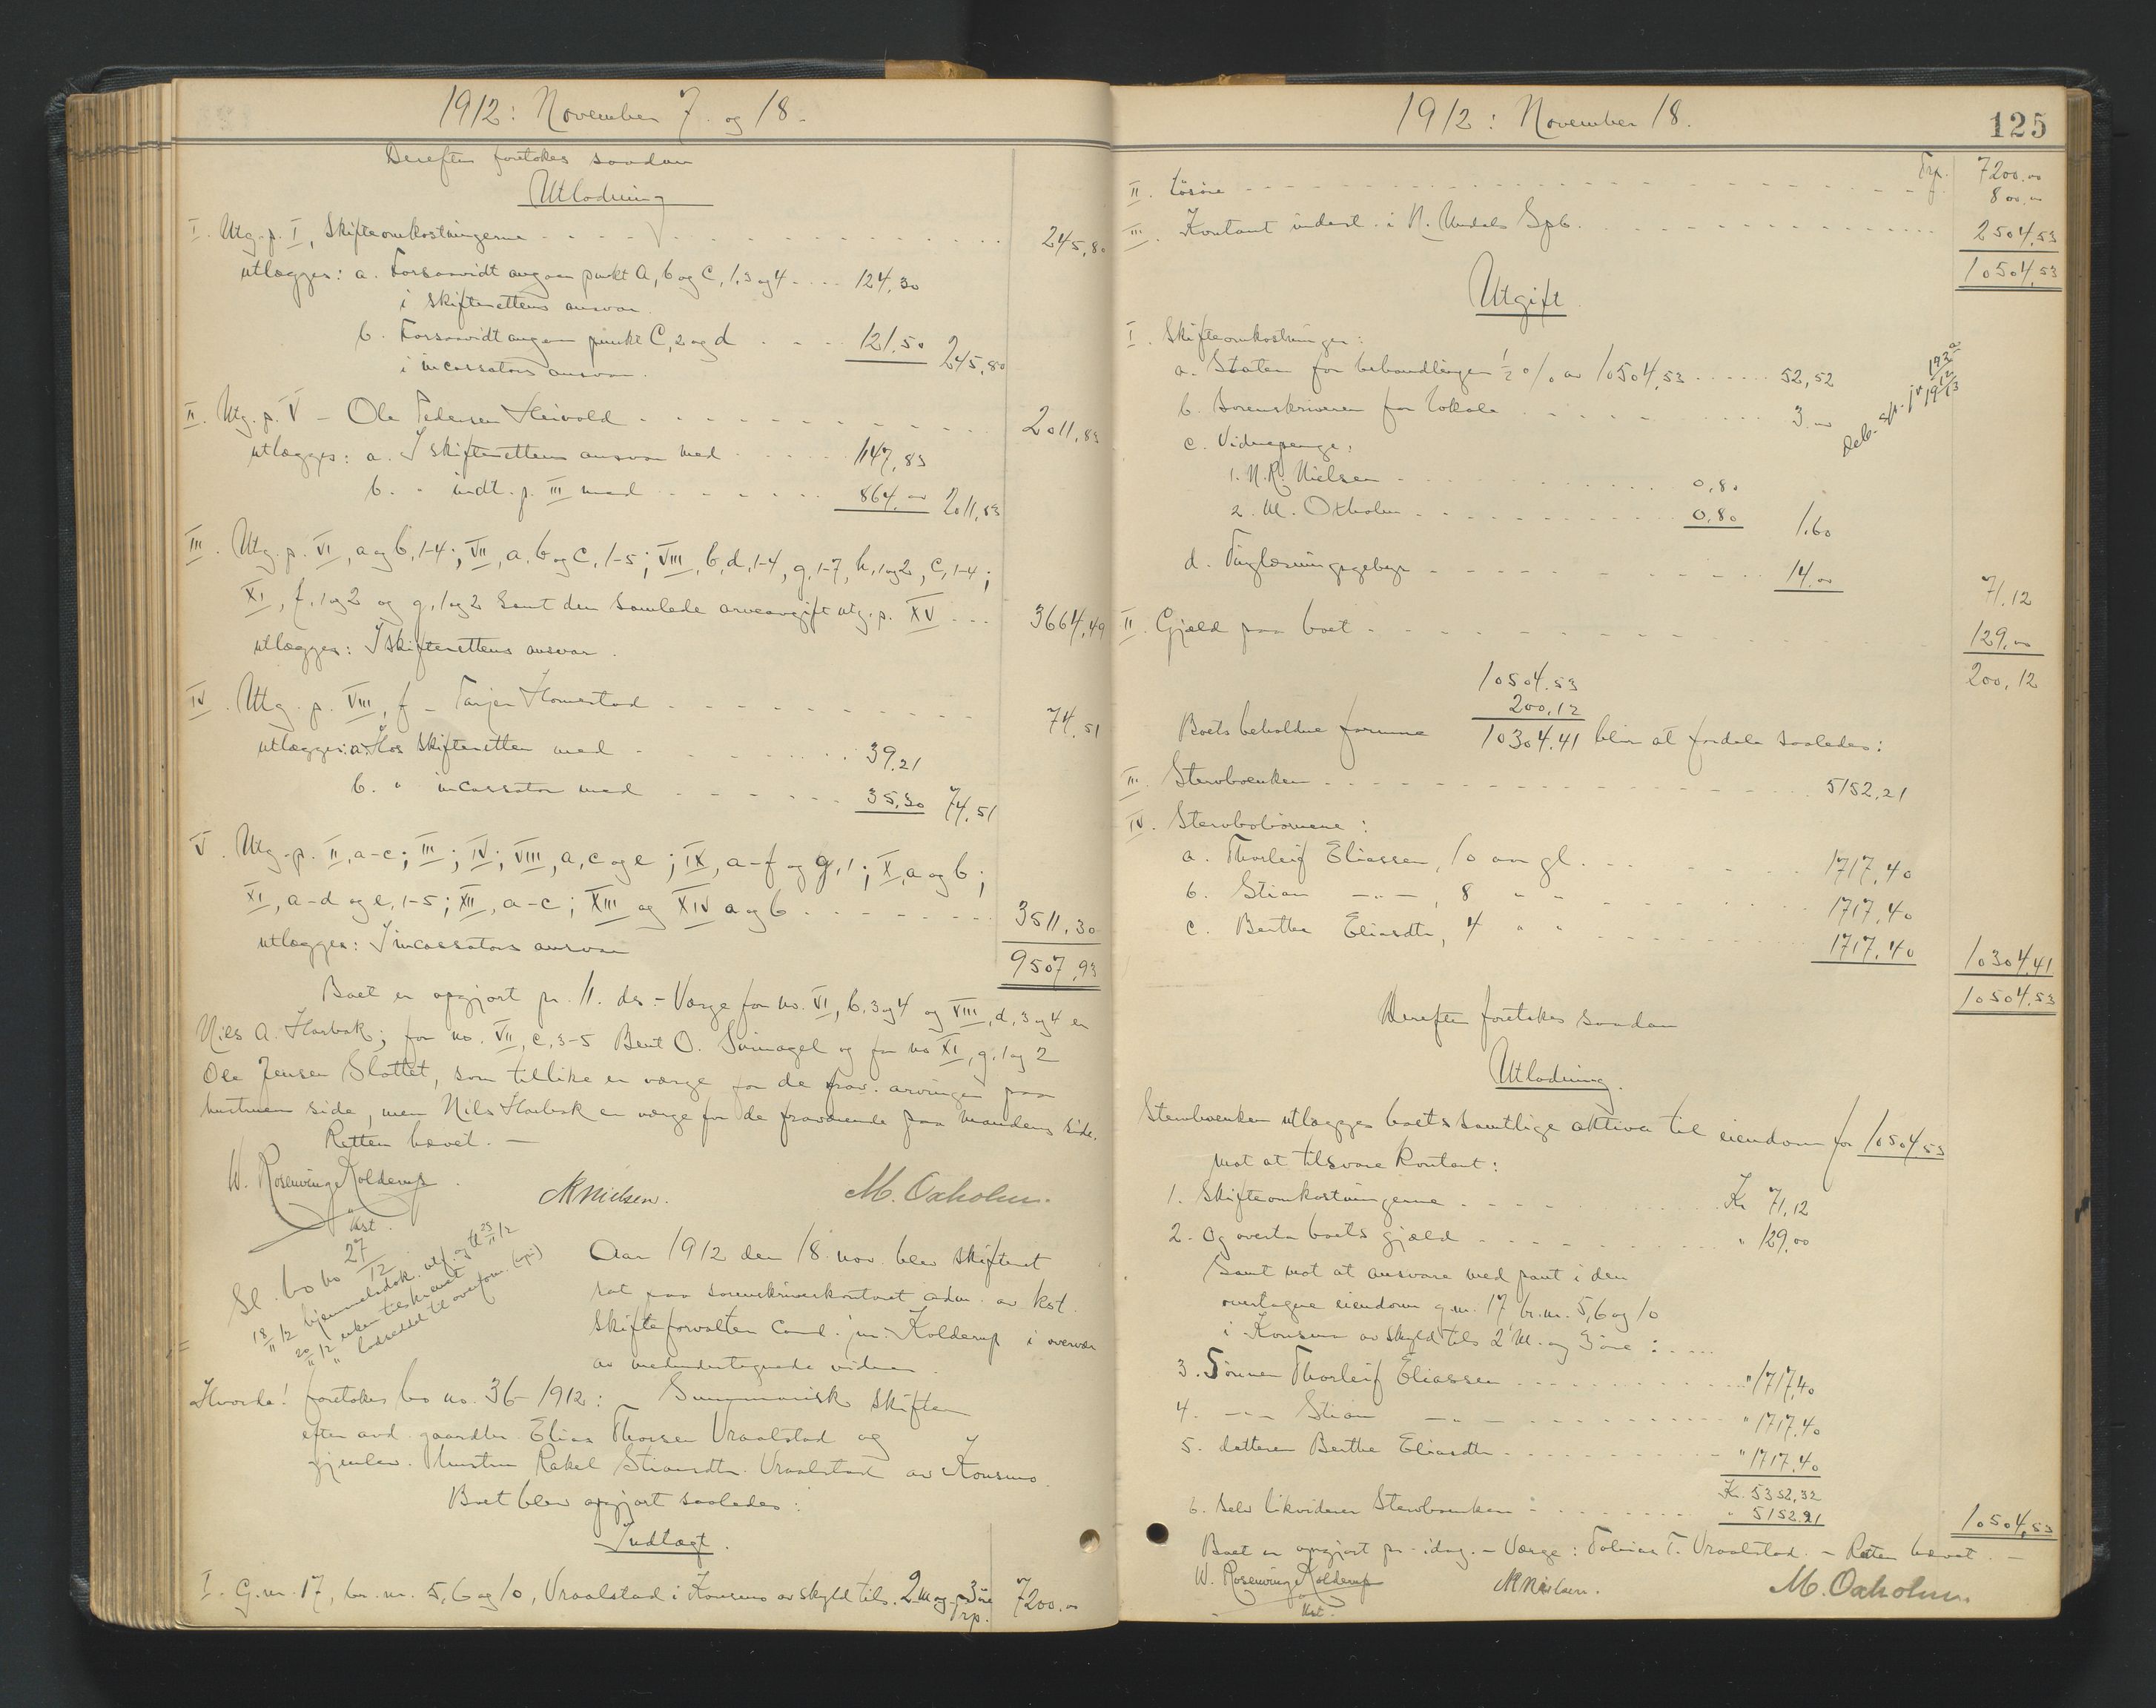 1912: November 7. og 18.
Derefter foretokes saadan
Utlodning
I. Utg. p. I, Skifteomkostningerne 245,80
utlægges: a. Forsaavidt angaar punkt a, b og c, 1, 3 og 4 124,30
i skifterettens ansvar.
b. Forsaavidt angaar punkt c, 2 og d 121,50 245,80
i incassators ansvar.
II. Utg. p. V – Ole Pedersen Heivold 2011,83
utlægges: a. I skifterettens ansvar med 1147,83
b. " indt. p. III med 864,00 2011,83
III. Utg. p. VI, a og b, 1-4; VII, a, b og c, 1-5; VIII, b, d, 1-4, g, 1-7, h, 1 og 2, c, 1-4;
XI, f, 1 og 2 og g, 1 og 2 samt den samlede arveavgift utg. p. XV 3664,49
utlægges: I skifterettens ansvar.
IV. Utg. p. VIII, f – Tarjer Homestad 74,51
utlægges: a. Hos skifteretten med 39,21
b. " incassator med 35,30 74,51
V. Utg. p. II, a-c; III; IV; VIII, a, c og e; IX, a-f og g, 1; X, a og b;
XI, a-d og e, 1-5; XII, a-c; XIII og XIV a og b 3511,30
utlægges: I incassators ansvar 9507,93
Boet er opgjort pr. 11. ds. – Værge for no. VI, b, 3 og 4 og VIII, d, 3 og 4 er
Nils A. Harbak; for no. VII, c, 3-5 Bent O. Svinagel og for no XI, g, 1 og 2
Ole Jensen Slottet, som tillike er værge for de frav. arvinger paa
hustruens side, men Nils Harbak er værge for de fraværende paa mandens side.
Retten hævet. –
W. Rosenvinge Kolderup
kst.
NRNielsen.
M. Oxholm.
Sl. bo no 27/12
18/11 12 hjemmelsdok. utf. og tl 25/11 12
20/11 12 enken tilskrevet
" lodseddel til overform.
Aar 1912 den 18. nov. blev skifteret
sat paa sorenskriverkontoret adm. av kst.
skifteforvalter cand. jur. Kolderup i overvær
av medundertegnede vidner.
Hvorda! foretokes bo no. 36 – 1912: Summarisk skifte
efter avd. gaardbr. Elias Thorsen Vraalstad og
gjenlev. hustru Rakel Stiansdtr. Vraalstad av Konsmo.
Boet blev opgjort saaledes:
Indtægt.
I. G.nr. 17, br. nr. 5, 6 og 10, Vraalstad i Konsmo av skyld tils. 2 m og 3 øre 7200.00
Trp.
1912: November 18.
125
Trp. 7200.00
II. Løsøre 800.00
III. Kontant indest. i N. Undals Spb. 2504,53
10504,53
Utgift
I. Skifteomkostninger:
a. Staten for behandlingen ½ % av 10504,53 52,52
b. Sorenskriveren for lokale 3.00
c. Vidnepenge:
1. N.R. Nielsen 0,80
2. M. Oxholm 0,80 1.60
d. Tinglæsningsgebyr 14.00
71.12
II. Gjæld paa boet 129.00
200,12
10504.53
200,12
Boets beholdne formue 10304.41 blir at fordele saaledes:
III. Stervboenken 5152,21
IV. Stervbobørnene:
a. Thorleif Eliassen, 10 aar gl. 1717,40
b. Stian –"–, 8 " " 1717,40
c. Berthe Eliasdtr, 4 " " 1717,40 10304,41
10504,53
Derefter foretokes saadan
Utlodning.
Stervboenken utlægges boets samtlige aktiva til eiendom for 10504,53
mot at tilsvare kontant:
1. Skifteomkostningerne Kr 71,12
2. Og overta boets gjæld " 129,00
Samt mot at ansvare med pant i den
overtagne eiendom g.nr. 17, br.nr. 5, 6 og 10
i Konsmo av skyld tils 2 M. og 3 øre:
3. Sønnen Thorleif Eliassen " 1717,40
4. –"– Stian –"– " 1717,40
5. datteren Berthe Eliasdtr " 1717,40
Kr. 5352,32
6. Selv likviderer Stervboenken " 5152.21 10504,53
Boet er opgjort pr. idag. – Værge: Tobias T. Vraalstad. – Retten hævet. –
W. Rosenvinge Kolderup
kst.
NRNielsen.
M. Oxholm.